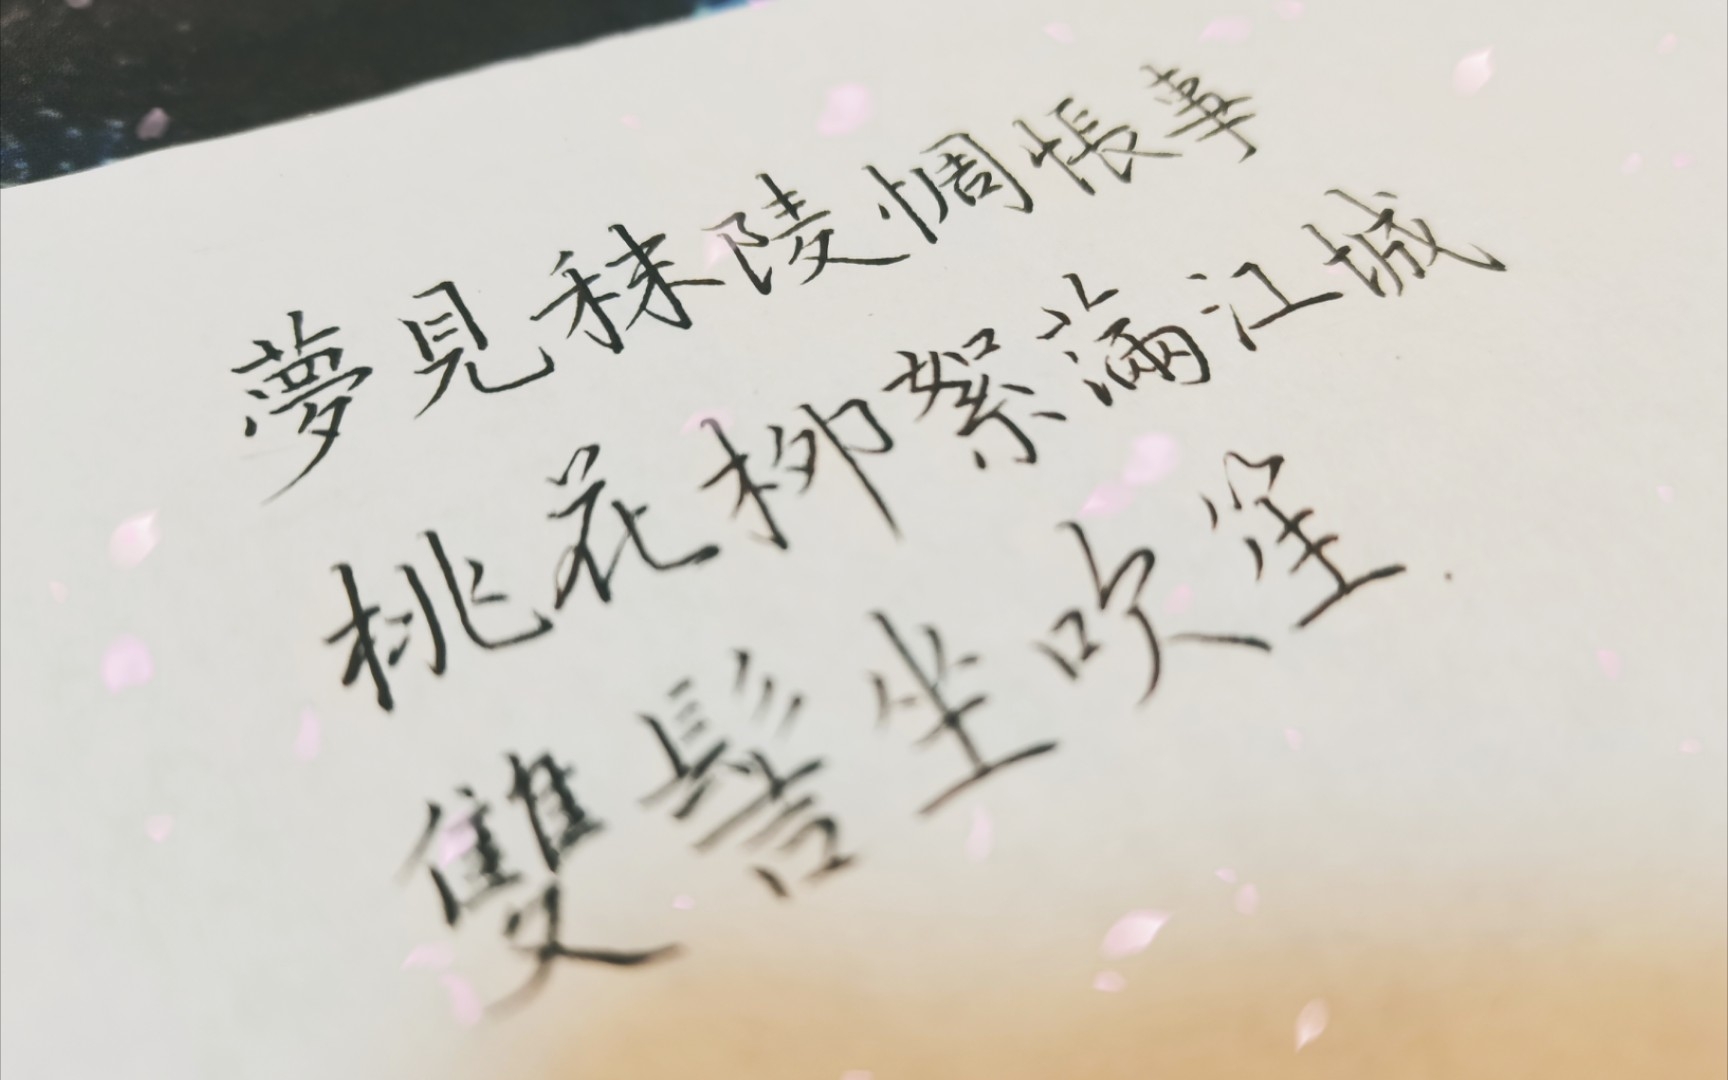 夢見秣陵惆悵事
桃花柳絮滿江城
雙髻坐吹笙